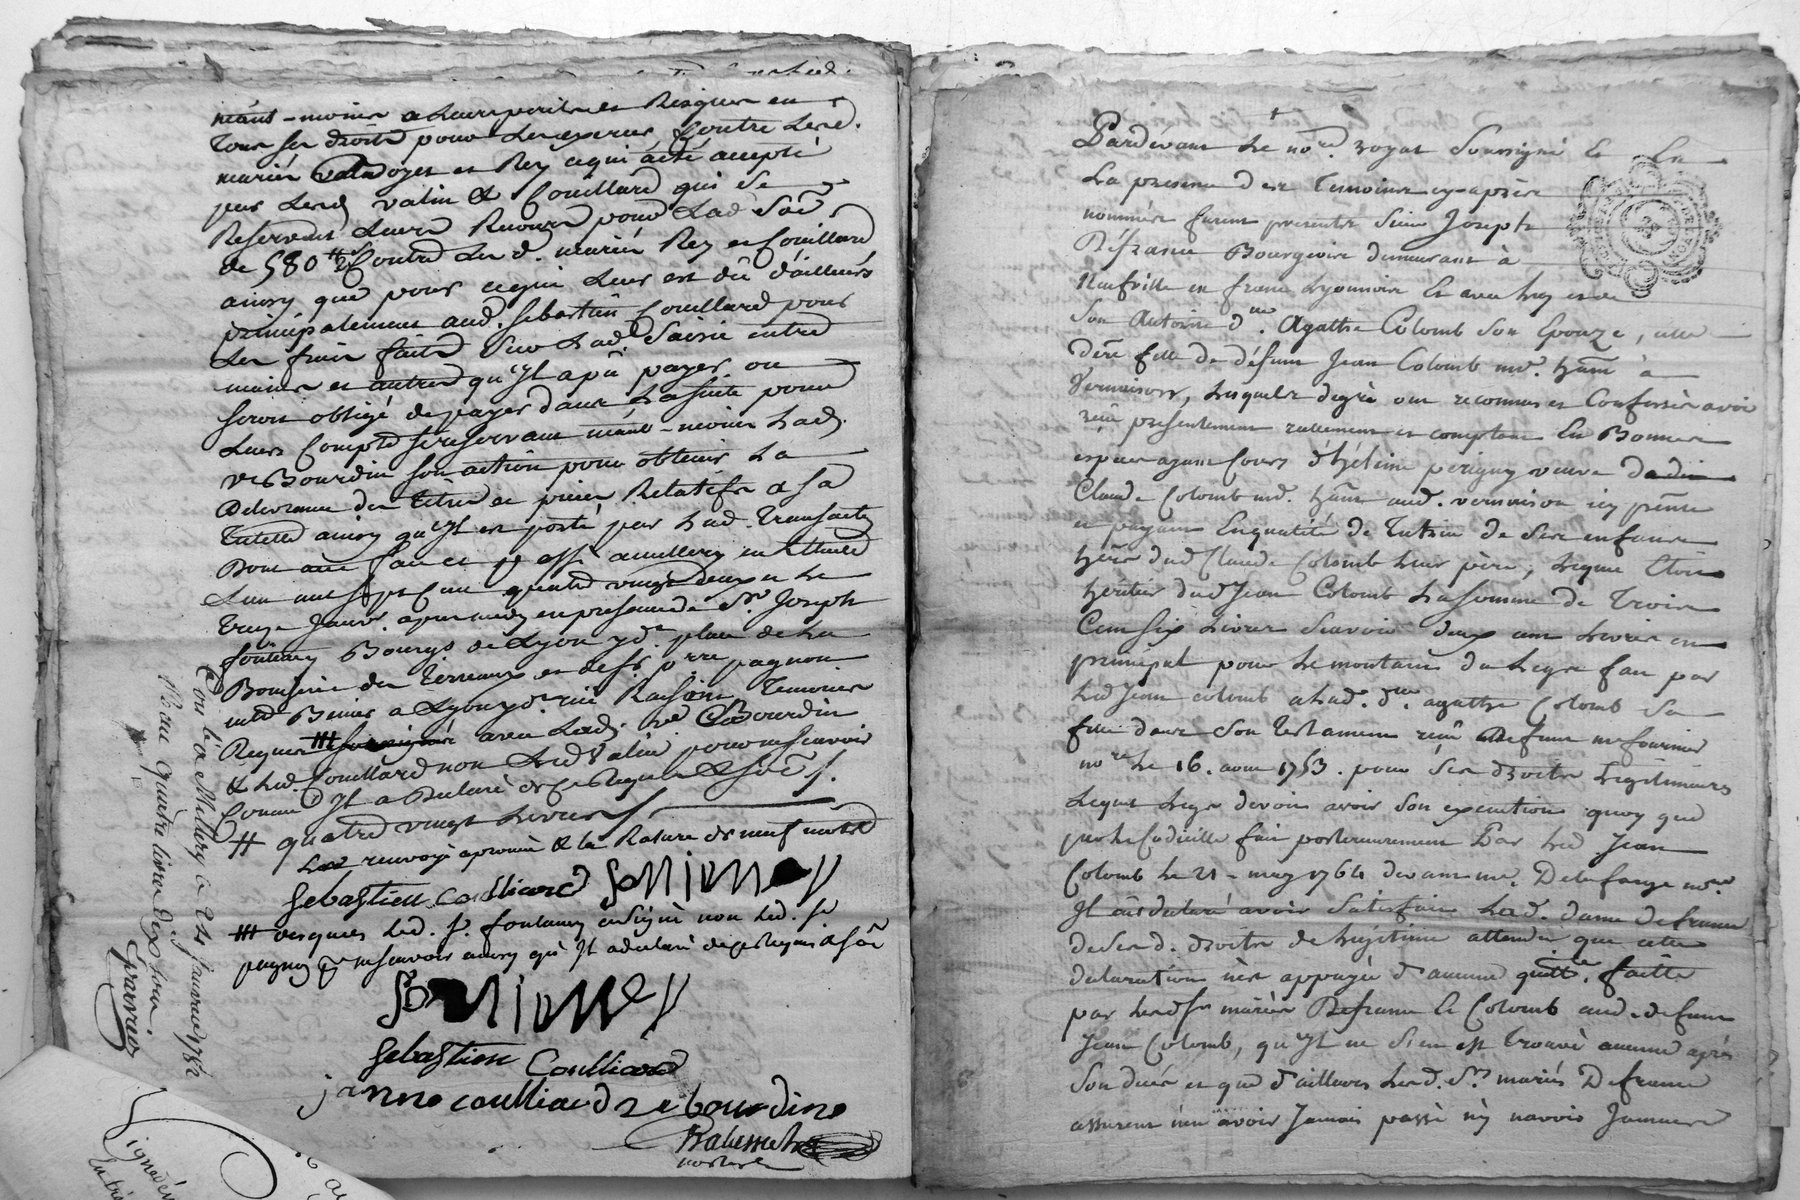 néant-moins a leurs perils et Risques en
Tous ses droits pour les exercer Contre lesd.
mariés et Rey ce qui a été accepté
par lesd. valin & Couillard qui se
Reservent leurs Recours pour lad. Soe
de 580 # Contre les d. mariés Rey et Couillard
ainsy que pour ce qui leur est dû d'ailleurs
principalement aud. Sebastien Couillard pour
les frais faits Sur lad. Saisie entre
mains et autres qu'Il a pû payer ou
seroit obligé de payer dans la suite pour
leurs Compte se reservant néant-moins lad.
ve. Bourdin son action pour obtenir la
Delivrance des Titres et pieces Relatifs a sa
Tutelle ainsy qu'Il est porté par lad. Transaction
Dont acte fait et p. assé a millery en l'Etude
L'an mil sept Cent quatre vingt deux et le
Treize Janvr. apres midy en presence de Sr. Joseph
fontaney Bourgs. de Lyon y dt. place de la
Boucherie des Terreaux et de Sr. pierre pagnon
md. a Lyon y dt. rüe Raisin Temoins
Requis ### avec lad. ve. Bourdin
& led. Couillard non led. Valin pour ne scavoir
Comme Il a Declaré de ce Requis & Soe /.
# quatre vingt Livres /.
Les renvoys aprouvés & la Rature de neuf mots
Sebastien couilliard fontaney
### desquels led. Sr. fontaney a signé non led. Sr.
pagnon pr. ne scavoir ainsy qu'Il a declaré de ce Requis & Soe
fontaney
Sebastien Couilliard
janne coulliard ve bourdine
notaire
Con. lé a Millery le 24 Janvier 1782
Recu quatre livres dix sous.
Signé
Pardevant Le nore. royal Soussigné & En
La presence des Temoins cy-apres
nommés furent presents Sieur Joseph
Défrance Bourgeois demeurant à
Neufville en franc Lyonnois & avec luy et de
son Autorité de. Agathe Colomb son Epouze, cette
dere. fille de défunt Jean Colomb md. hant. à
Vernaison, Lesquels degré ont reconnu et Confessés avoir
reçu presentement reellement et comptant En Bonnes
especes ayant Cours d'hélèine perigny veuve dudit
Claude Colomb md. hant. aud. vernaison icy pnte.
et payant En qualité de Tutrice de ses enfants
hers. dud. Claude Colomb leur père, lequel étoit
héritier dud. Jean Colomb La Somme de Trois
Cent Six Livres Scavoir deux cent Livres en
principal pour le montant du Legs fait par
led. Jean Colomb a lad. de. agathe Colomb sa
fille dans son Testament reçu Défunt me. fournier
nore. le 16. aout 1753. pour ses droits Légitimaires
Lequel Legs devoit avoir son execution quoy que
par le Codicille fait posterieurement Par led. Jean
Colomb le 21 - may 1764 devant me. Delafarge nore.
Il ait declaré avoir satisfait lad. dame defrance
de sesd. droits de légitime attendu que cette
declaration n'est appuyée d'aucune quitte. faitte
par lesdts. mariés Defrance & Colomb aud. defunt
Jean Colomb, qu'Il ne s'en est trouvé aucune après
son deces et que d'ailleurs lesd. Srs. mariés Defrance
assurent n'en avoir Jamais passé ny n'avoir Jamais